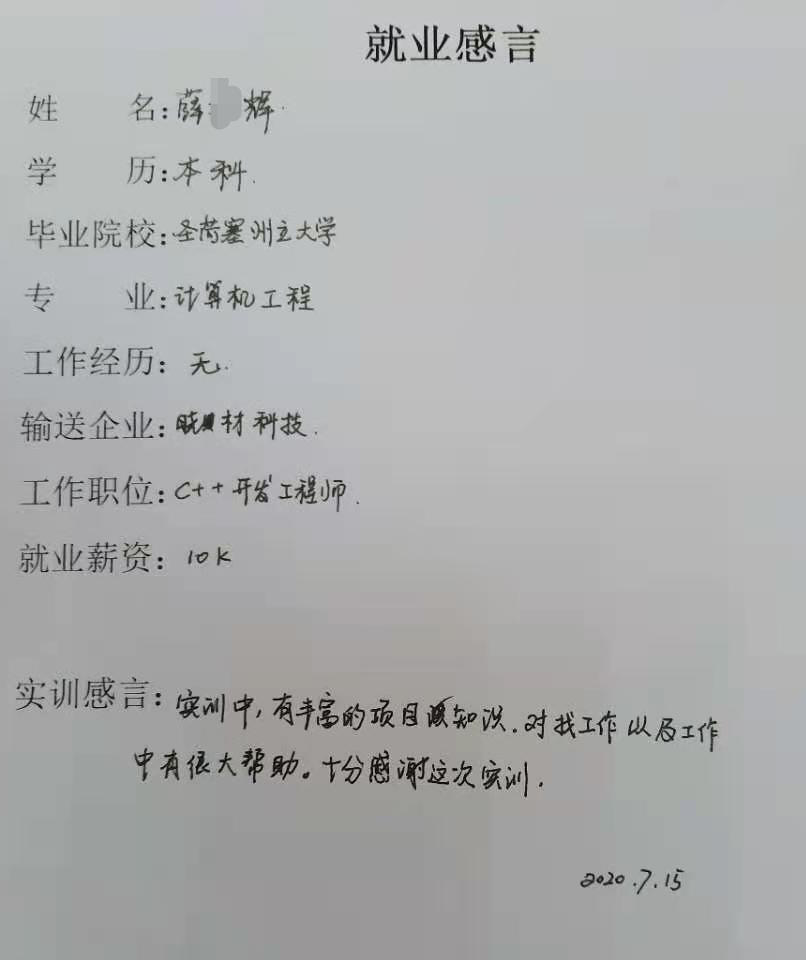 就业感言
姓 名:薛 辉.
学 历:本科.
毕业院校:圣荷塞州立大学
专 业:计算机工程
工作经历:无.
输送企业: 材科技.
工作职位:C++开发工程师.
就业薪资:10K
实训感言:实训中,有丰富的项目 知识.对找工作以及工作
中有很大帮助。十分感谢这次实训.
2020.7.15